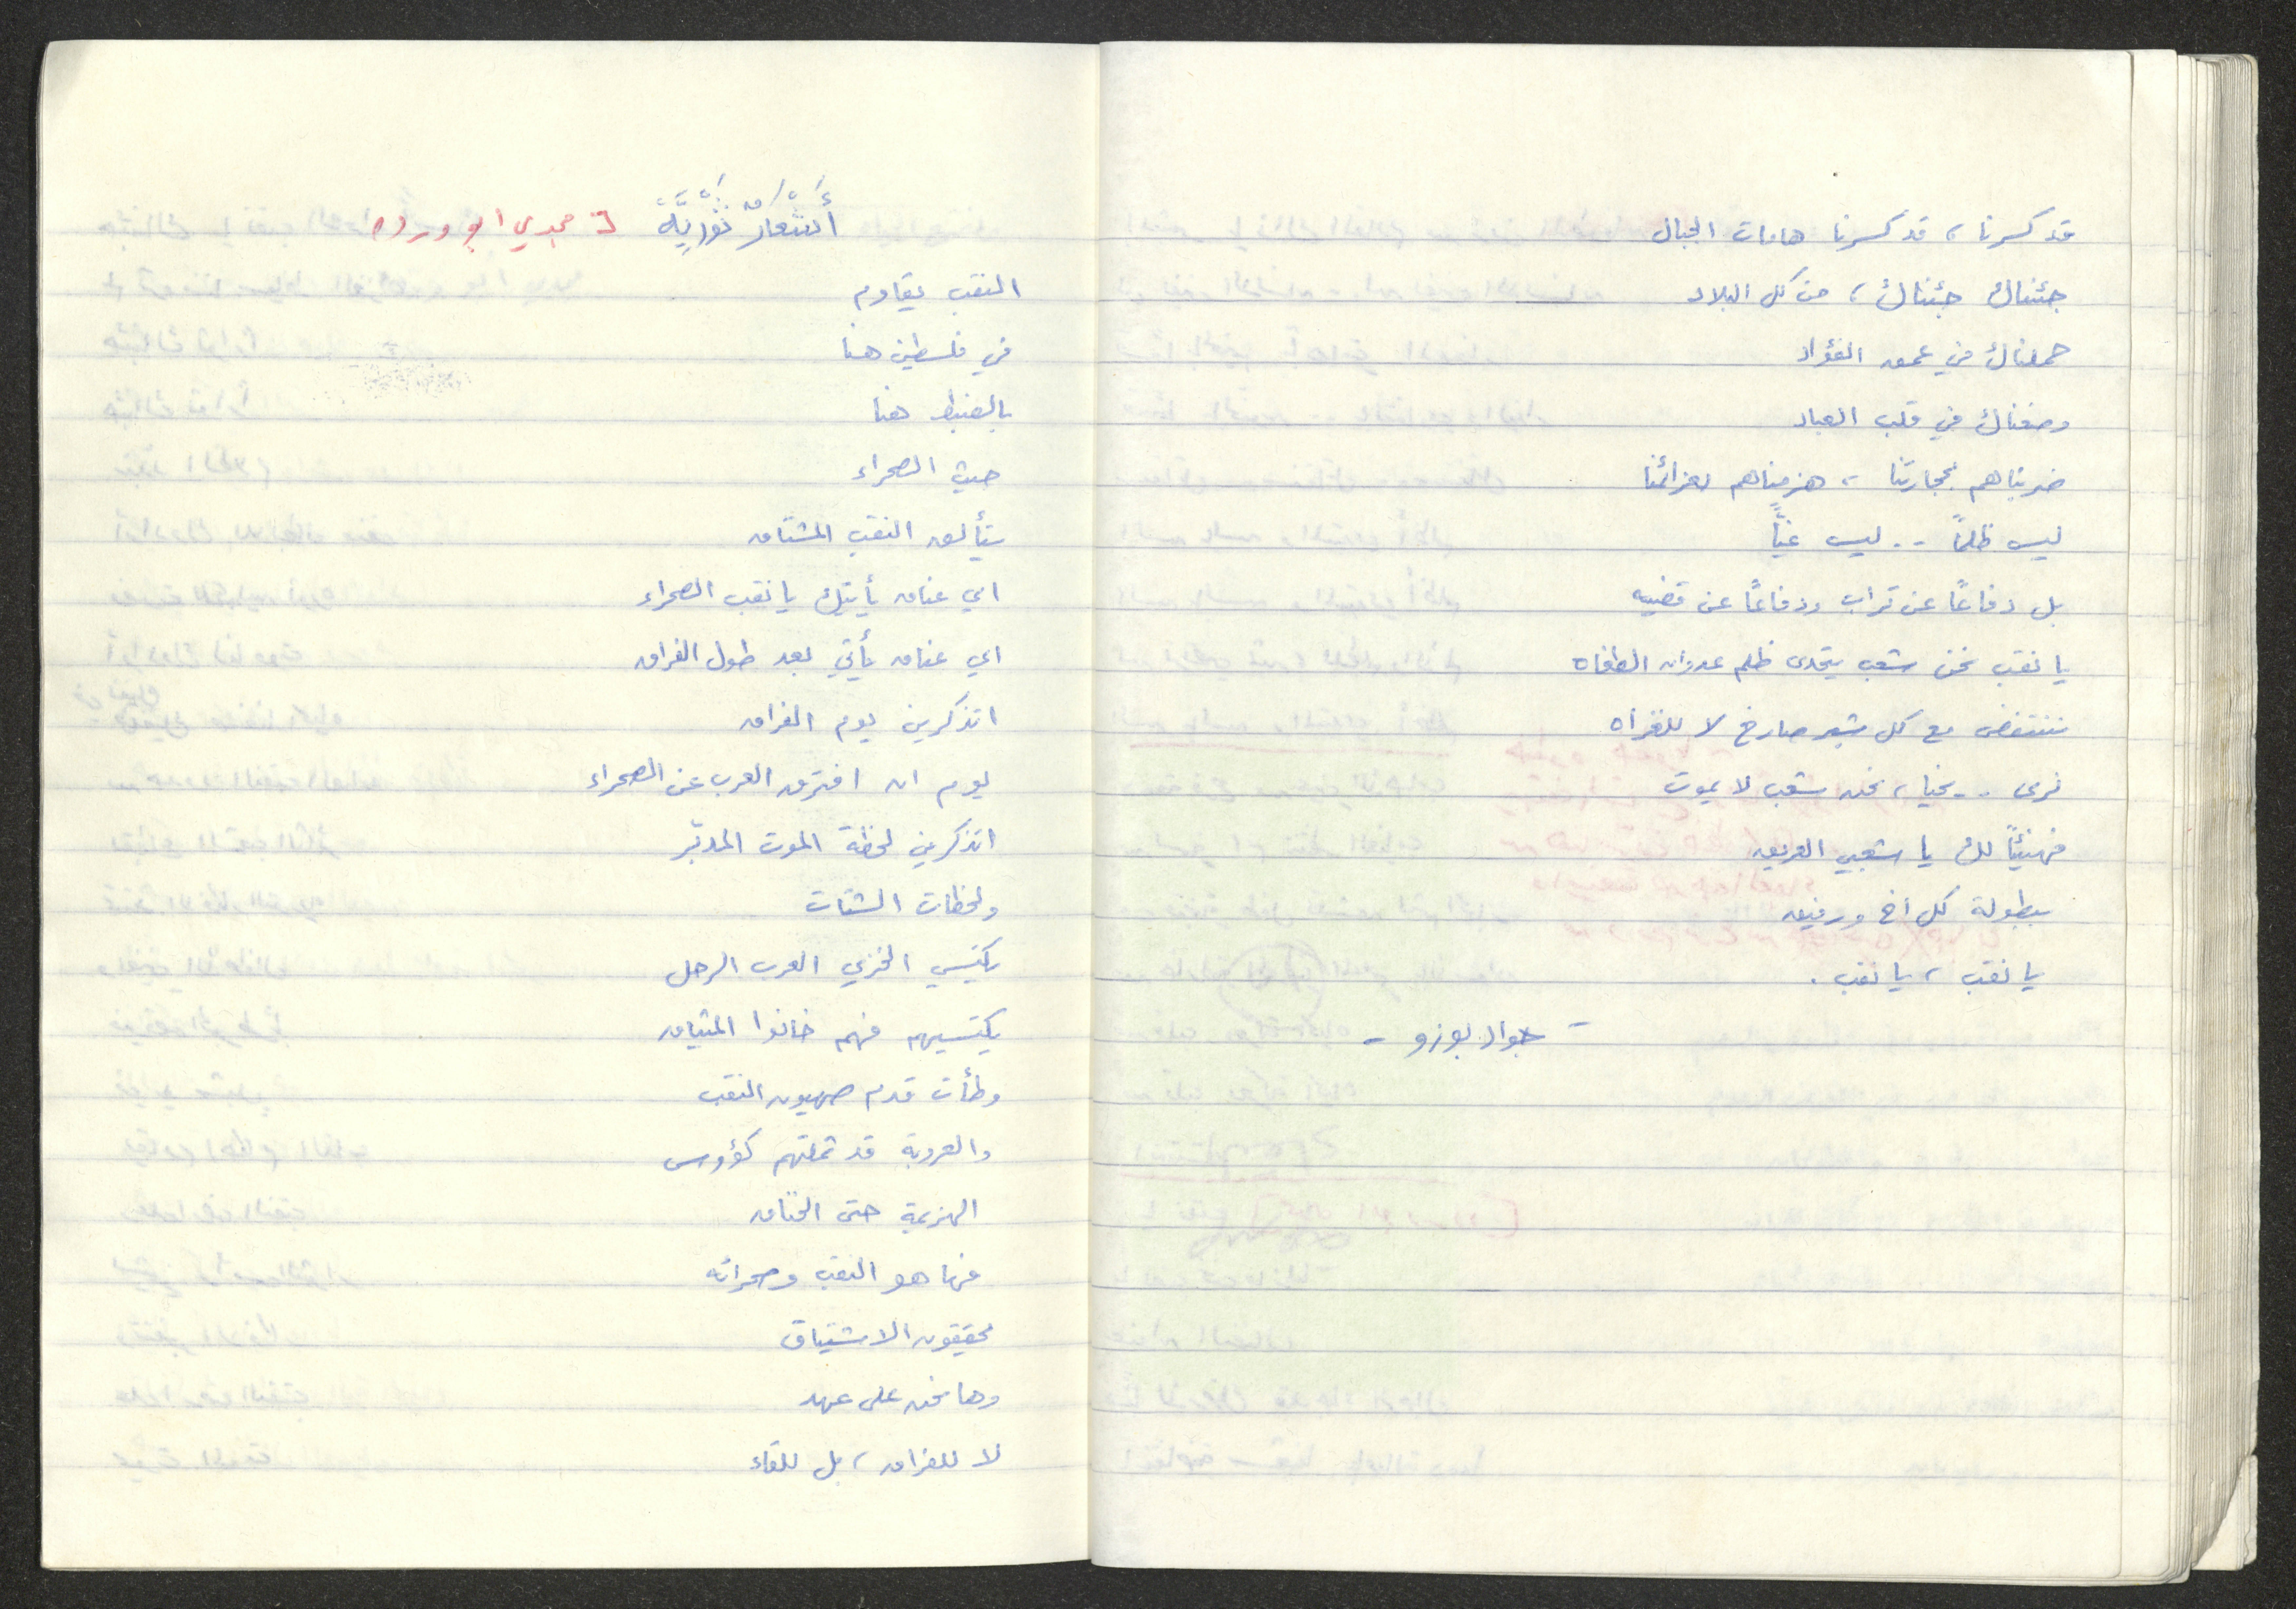 قد كسرنا، قد كسرنا هامات الجبال
جئناك جئناك، من كل البلاد
حملناك في عمق الفؤاد
وضعناك في قلب العباد
ضربناهم بحجارتنا، هزمناهم بعزائمنا
ليس ظلماً .. ليس غيّاً
بل دفاعاً عن تراب ودفاعاً عن قضيه
يا نقب نحن شعب يتحدى ظلم عدوان الطغاه
ننتفض مع كل شبر صارخ لا للغزاه
نرى .. نحيا، نحن شعب لا يموت
فهنيئاً لك يا شعبي العريق
ببطولة كل أخ ورفيق
يا نقب، يا نقب.
- جواد بوزو -
أَشْعَارٌ ثَوْرِيَّة
لـ: مجدي ابو ورده
النقب يقاوم
في فلسطين هنا
بالضبط هنا
حيث الصحراء
يتألق النقب المشتاق
اي عناق يأتيك يا نقب الصحراء
اي عناق يأتي بعد طول الفراق
اتذكرين يوم الفراق
يوم ان افترق العرب عن الصحراء
اتذكرين لحظة الموت المدبّر
ولحظات الشتات
يكتسي الخزي العرب الرحل
يكتسيهم فهم خانوا الميثاق
وطأت قدم صهيون النقب
والعروبة قد ثملتهم كؤوس
الهزيمة حتى الخناق
فها هو النقب وصحرائه
يحققون الاشتياق
وها نحن على عهد
لا للفراق، بل للقاء